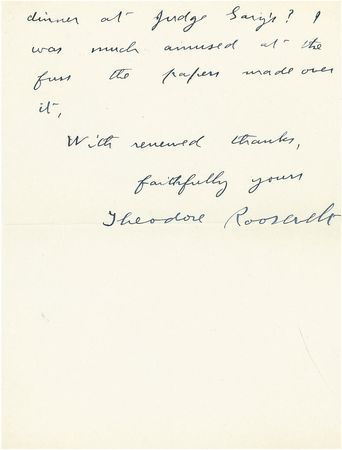 dinner at Judge Gary's? I
was much amused at the
fuss the papers made over
it,
With renewed thanks,
faithfully yours
Theodore Roosevelt